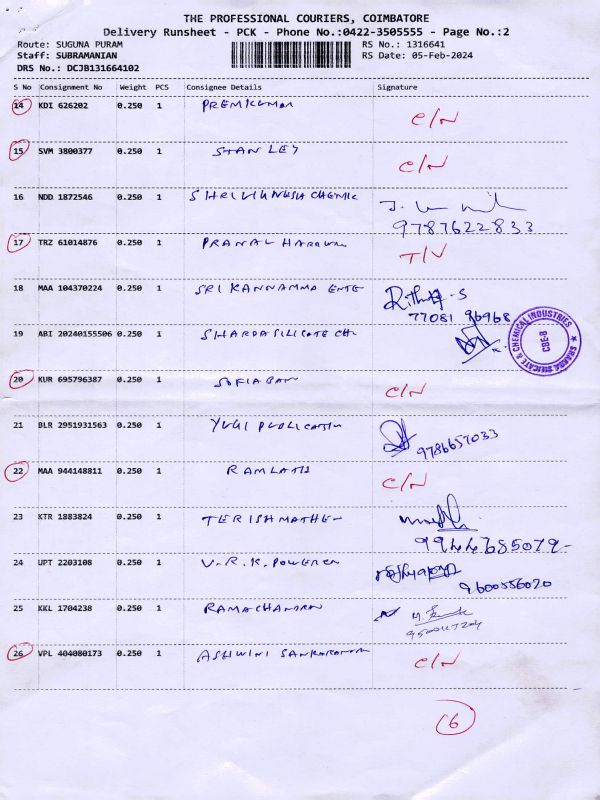 THE PROFESSIONAL COURIERS, COIMBATORE
Delivery Runsheet - PCK - Phone No.:0422-3505555 - Page No.:2
Route: SUGUNA PURAM
RS No.: 1316641
Staff: SUBRAMANIAN
RS Date: 05-Feb-2024
DRS No.: DCJB131664102
S No Consignment No Weight PCS Consignee Details Signature
14 KDI 626202 0.250 1 PREMKUMAR C/N
15 SVM 3800377 0.250 1 STANLEY C/N
16 NDD 1872546 0.250 1 SHRI VIGNESH CHEMIC
9787622833
17 TRZ 61014876 0.250 1 PRANAV T/V
18 MAA 104370224 0.250 1 SRI KANNAMMA ENTE
77081 96968
19 ABI 20240155506 0.250 1 SHARDA SILICATE CH
SHARDA SILICATE & CHEMICAL INDUSTRIES
CBE-8
20 KUR 695796387 0.250 1 SOFIA BANU C/N
21 BLR 2951931563 0.250 1 YUGI PUBLICATION
9786657033
22 MAA 944148811 0.250 1 RAMLATH C/N
23 KTR 1883824 0.250 1 TERISH MATHEW
9944685079-
24 UPT 2203108 0.250 1 V.R.K. POWEREN
9600556020
25 KKL 1704238 0.250 1 RAMACHANDRAN
26 VPL 404080173 0.250 1 ASHWINI SANKARAN C/N
16